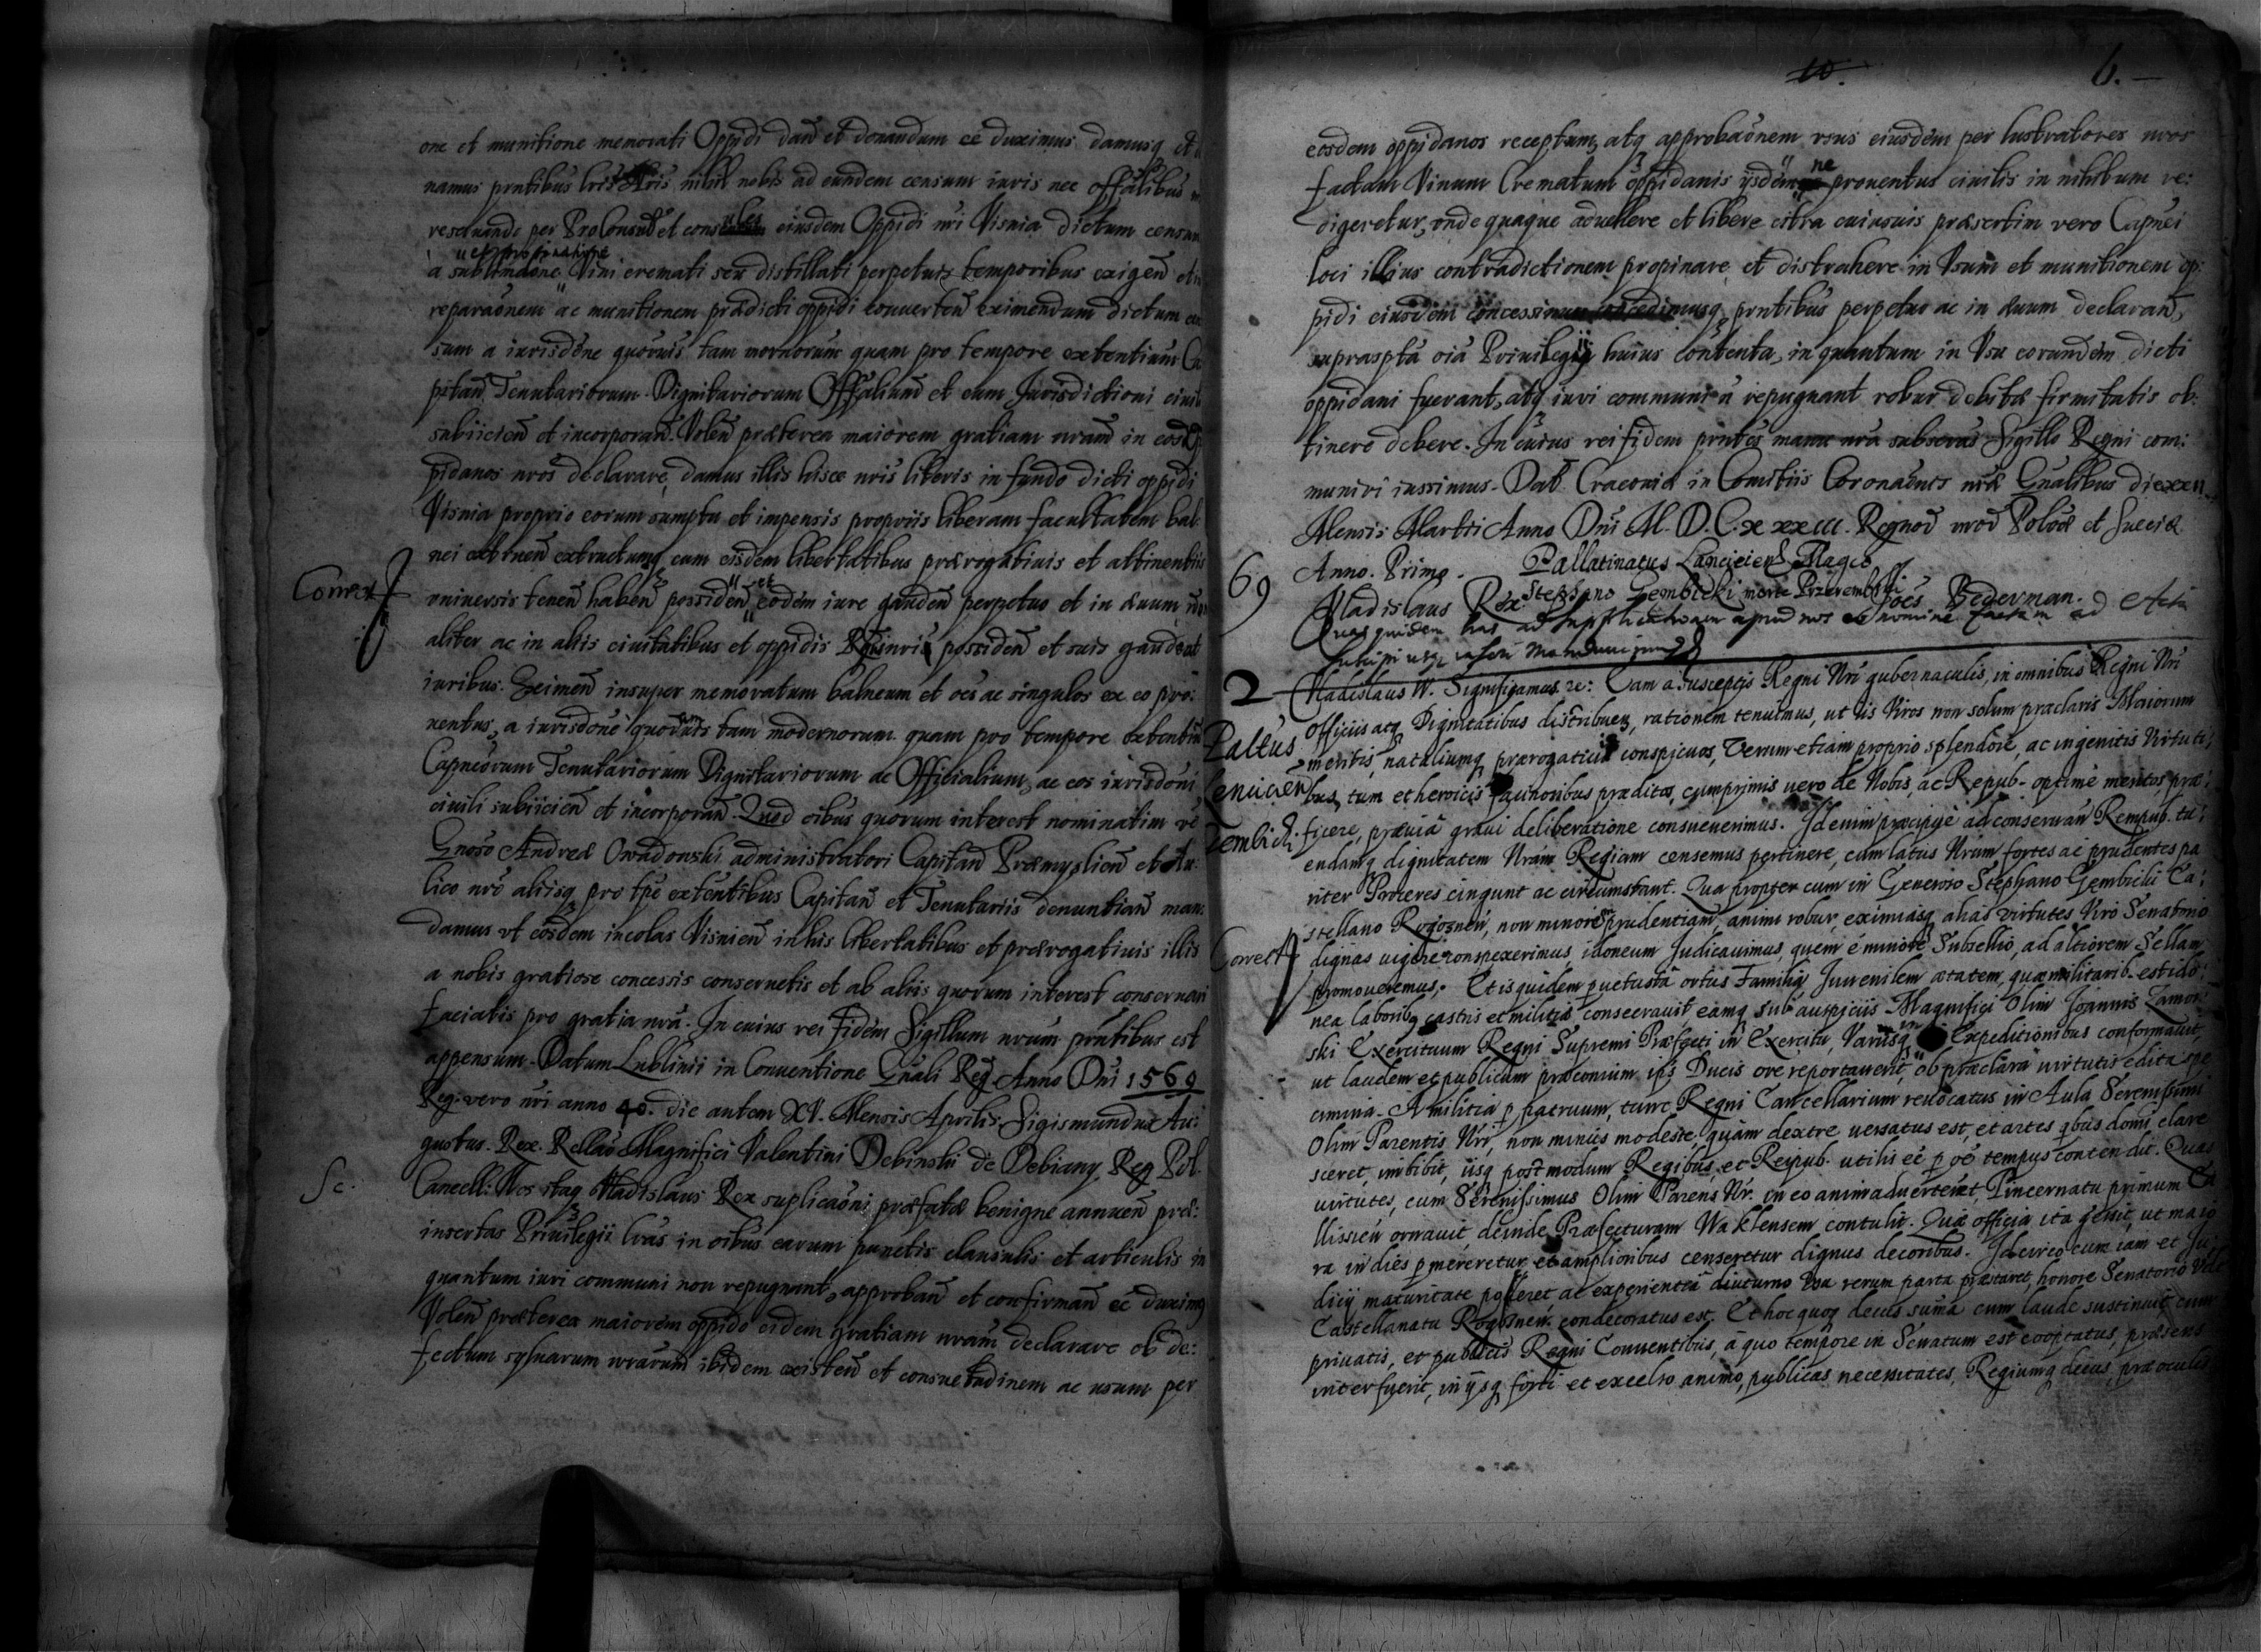 one et munitione memorati Oppidi dañ et donandum eẽ duximus damusq et
namus pñtibus lris nris nihil nobis ad eundem censum iuris nec offalibus
reseruando per Prolonsul et consules eiusdem Oppidi nri Visnia dictum censum
et propinatione
a sublimaõne Vini cremati seu distillati perpetuis temporibus exigeñ et in
reparaõnem ac munitionem prædicti oppidi conuerteñ eximendum dictum cen
sum a iurisdõne quoruis tam mornorum quam pro tempore extentium Ca
pitañ Tenutariorum Dignitariorum Offalium et eum Jurisdictioni ciuili
subiicieñ et incorporañ. Voleñ præterea maiorem gratiam nram in eosd op
pidanos nros declarare, damus illis hisce nris literis in fundo dicti oppidi
Visnia proprio eorum sumptu et impensis propriis liberam facultatem bal
nei extrueñ extructumq cum eisdem libertatibus prærogatiuis et attinentiis
Correct
uniuersis teneñ habeñ possideñ et eodem iure gaudeñ perpetuo et in æuum
aliter ac in aliis ciuitatibus et oppidis Regni nris possideñ et suis gaudeat
iuribus. Eximeñ insuper memoratum balneum et oẽs ac singulos ex eo pro:
uentus, a iurisdõne quoruis tam modernorum quam pro tempore extentiũ
Capneorum Tenutariorum Dignitariorum ac Officialium, ac eos iurisdõni
ciuili subiicieñ et incorporañ. Quod oibus quorum interest nominatim vẽ
Gnoso Andreæ Owadowski administratori Capitañ Præmyslieñ et Au:
lico nro aliisq pro tpe extentibus Capitañ et Tenutariis denuntiañ man:
damus vt eosdem incolas Visnieñ in his libertatibus et prærogatiuis illis
a nobis gratiose concessis conseruetis et ab aliis quorum interest conseruari
faciatis pro gratia nra. In cuius rei fidem Sigillum nrum pñtibus est
appensum. Datum Lublinii in Conuentione Gñali Reg Anno Dni 1569
Reg: vero nri anno 40. die autem XV. Mensis Aprilis. Sigismundus Au:
gustus Rex. Rellao Magnifici Valentini Debinski de Debiany Reg Pol
Sc.
Cancell: Nos itaq Vladislaus Rex suplicaõni præfatæ benigne annueñ præ:
insertas Priuilegii lras in oibus earum punctis clausulis et articulis in
quantum iuri communi non repugnant, approbañ et confirmañ eẽ duximus
Voleñ præterea maiorem oppido eidem gratiam nram declarare ob de:
fectum syluarum nrarum ibidem existeñ et consuetudinem ac usum per
10. 6.
eosdem oppidanos receptum, atq approbaõnem usus eiusdem per lustratores nros
factam Vinum Crematum oppidanis ijsdem ne prouentus ciuilis in nihilum re:
digeretur, undequaque aduehere et libere citra cuiusuis præsertim vero Capnei
loci illius contradictionem propinare et distrahere in Vsum et munitionem op:
pidi eiusdem concessimus concedimusq pñtibus perpetuo ac in æuum declarañ,
suprasptã oia Priuilegij huius contenta, in quantum in Vsu eorundem dicti
oppidani fuerant, atq iuri communi ñ repugnant robur debitæ firmitatis ob:
tinere debere. In cuius rei fidem pñtes manu nra subscras Sigillo Regni com:
muniri iussimus. Dat Cracoviæ in Comitiis Coronaõnis nræ Gñalibus die xxII
Mensis Martii Anno Dni M.D.C.xxxIII. Regnoꝝ nroꝝ Polõæ et Sueciæ
69
Anno. Primo. Pallatinatus Lanciciens Magco
Stephano Gembicki morte Przerembski
Vladislaus Rex. Joẽs Bederman.
Quas quidem has ad supplicationem apud nos eo nomine factam ad Acta
suscipi usq inseri mandauimus
2 Vladislaus IV. Significamus re: Cum a susceptis Regni Nri gubernaculis, in omnibus Regni Nri
officiis atq Dignitatibus distribueñ, rationem tenuimus, ut iis Viros non solum præclaris Maiorum
Paltus meritis, nataliumq prærogatiuis conspicuos, Verum etiam proprio splendore, ac ingenitis Virtuti:
Lenicien bus, tum et heroicis facinoribus præditos, cumprimis uero de Nobis, ac Repub. optime meritos, præ:
Zembicki. ficere, præuia graui deliberatione consueuerimus. Id enim præcipue ad conseruañ Rempub. tu:
endamq dignitatem Nram Regiam censemus pertinere, cum latus Nrum fortes ac prudentes pa
riter Proceres cingunt ac circumstant. Quapropter cum in Generoso Stephano Gembicki Ca:
stellano Rogozneñ, non minorem prudentiam, animi robur, eximiasq alias virtutes Viro Senatorio
Correct dignas uigere conspexerimus, idoneum Judicauimus, quem e minore Subsellio, ad altiorem Sellam
promoueremus. Et is quidem peruetusta ortus Familia Juuenilem ætatem, quæ militarib. est ido:
nea laborib, castris et militiæ consecrauit eamq sub auspiciis Magnifici Olim Joannis Zamoi:
ski Exercituum Regni Supremi Præfecti in Exercitu, Variisq in Expeditionibus conformauit,
ut laudem et publicum præconium ipsi Ducis ore reportauerit, ob præclara uirtutis edita spe
cimina. A militia p patruum, tunc Regni Cancellarium reuocatus in Aula Serenissimi
Olim Parentis Nri, non minus modeste, quam dextre uersatus est, et artes qbus domi clare
sceret, imbibit, iisq postmodum Regibus, et Reipub. utilis eẽ p oẽ tempus contendit. Quas
uirtutes, cum Serenissimus Olim Parens Nr. in eo animaduerteret, Pincernatu primum Ca
llissien ornauit, deinde Præfecturam Waklensem contulit. Quæ officia ita gessit, ut maio
ra in dies pmereretur et amplioribus censeretur dignus decoribus. Idcirco cum iam et Ju
dicij maturitate polleret, ac experientia diuturno usu rerum parta præstaret, honore Senatorio
Castellanatu Rogozneñ. condecoratus est. Et hoc quoq decus suma cum laude sustinuit cum
priuatis, et publicis Regni Conuentibus, a quo tempore in Senatum est cooptatus, præsens
interfuerit, in ijsq forti et excelso animo, publicas necessitates, Regiumq decus, præ oculis